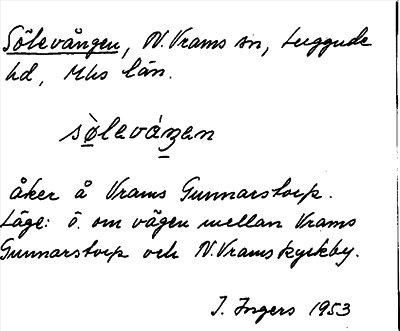 Sölevången, N. Vrams sn, Luggude
hd, Mhs län.
sö̀leváŋen
åker å Vrams Gunnarstorp.
Läge: ö. om vägen mellan Vrams
Gunnarstorp och N. Vrams kyrkby.
I. Ingers 1953